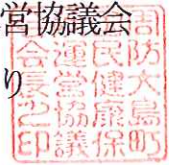 営協議会
り
周防大島町
民健康保
運営協議
会長之印